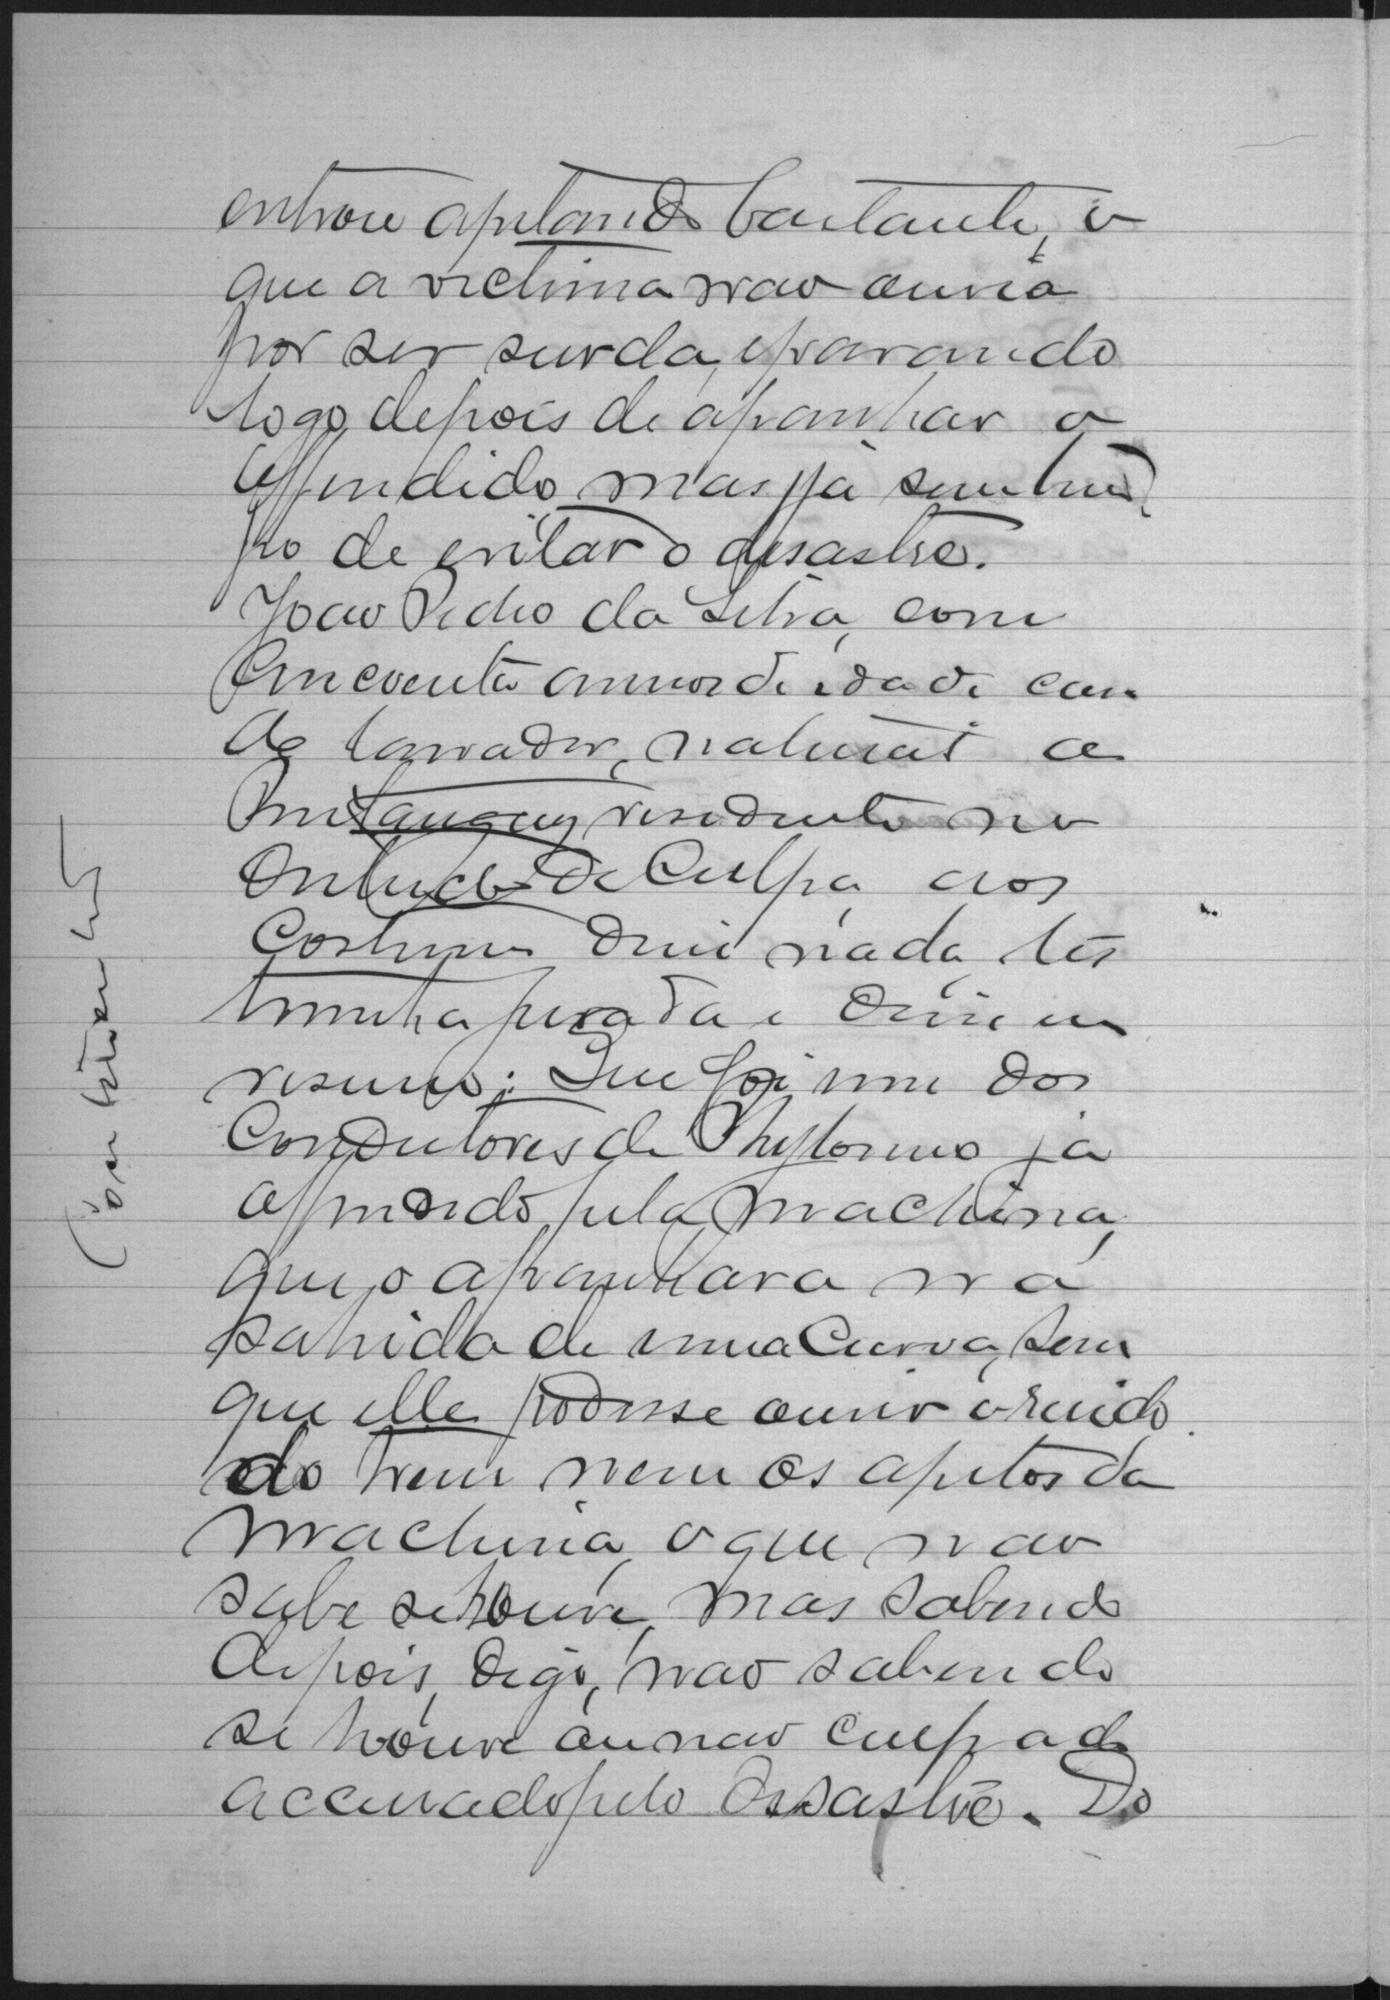 entrou apitando bastante, o
que a victima não ouvia
por ser surda, e parando
logo depois de apanhar o
offendido, mas já sem tem
po de evitar o desastre.
João Pedro da Silva, com
cincoenta annos de idade, casa
do, lavrador, natural de
residente no
de Culpa, aos
costumes disse nada, tes
temunha jurada e disse em
resumo: Que foi um dos
conductores de já
offendido pela machina,
que o apanhara na
sahida de uma curva, sem
que elle podesse ouvir o ruido
do trem nem os apitos da
machina, o que não
sabe se houve, mas sabendo
depois, digo, não sabendo
se houve ou não culpa do
accusado pelo desastre. Do